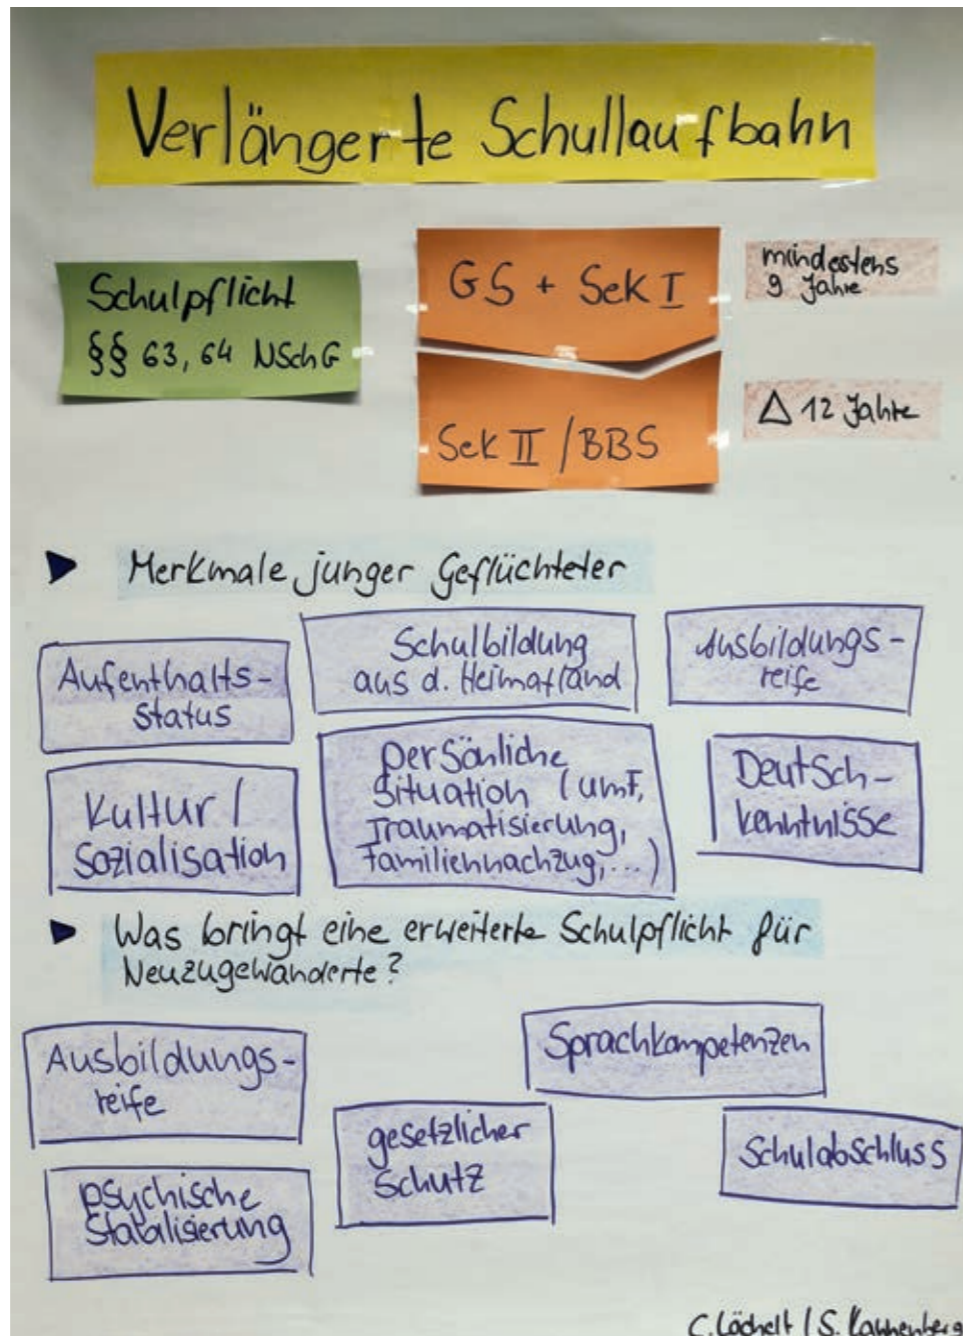 Verlängerte Schullaufbahn
Schulpflicht
§§ 63, 64 NSchG
GS + Sek I
mindestens
9 Jahre
Sek II / BBS
△ 12 Jahre
▶ Merkmale junger Geflüchteter
Aufenthalts-
status
Schulbildung
aus d. Heimatland
Ausbildungs-
reife
Kultur /
Sozialisation
persönliche
Situation (umF,
Traumatisierung,
Familiennachzug, ...)
Deutsch-
kenntnisse
▶ Was bringt eine erweiterte Schulpflicht für
Neuzugewanderte?
Ausbildungs-
reife
Sprachkompetenzen
gesetzlicher
Schutz
Schulabschluss
psychische
Stabilisierung
C. Löchelt / S.